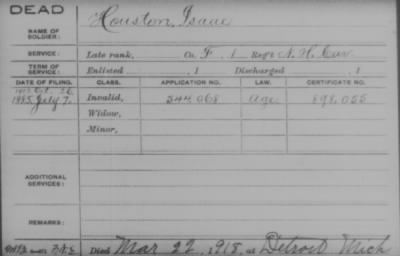 DEAD
NAME OF SOLDIER: Houston, Isaac
SERVICE: Late rank, Co. F, 1 Reg't N. H. Cav
TERM OF SERVICE: Enlisted , 1 Discharged , 1
DATE OF FILING. CLASS. APPLICATION NO. LAW. CERTIFICATE NO.
Oct. 26
1885 July 7. Invalid, 544068 Age 898,055
Widow,
Minor,
ADDITIONAL SERVICES:
REMARKS:
Died Mar 22, 1918, at Detroit Mich